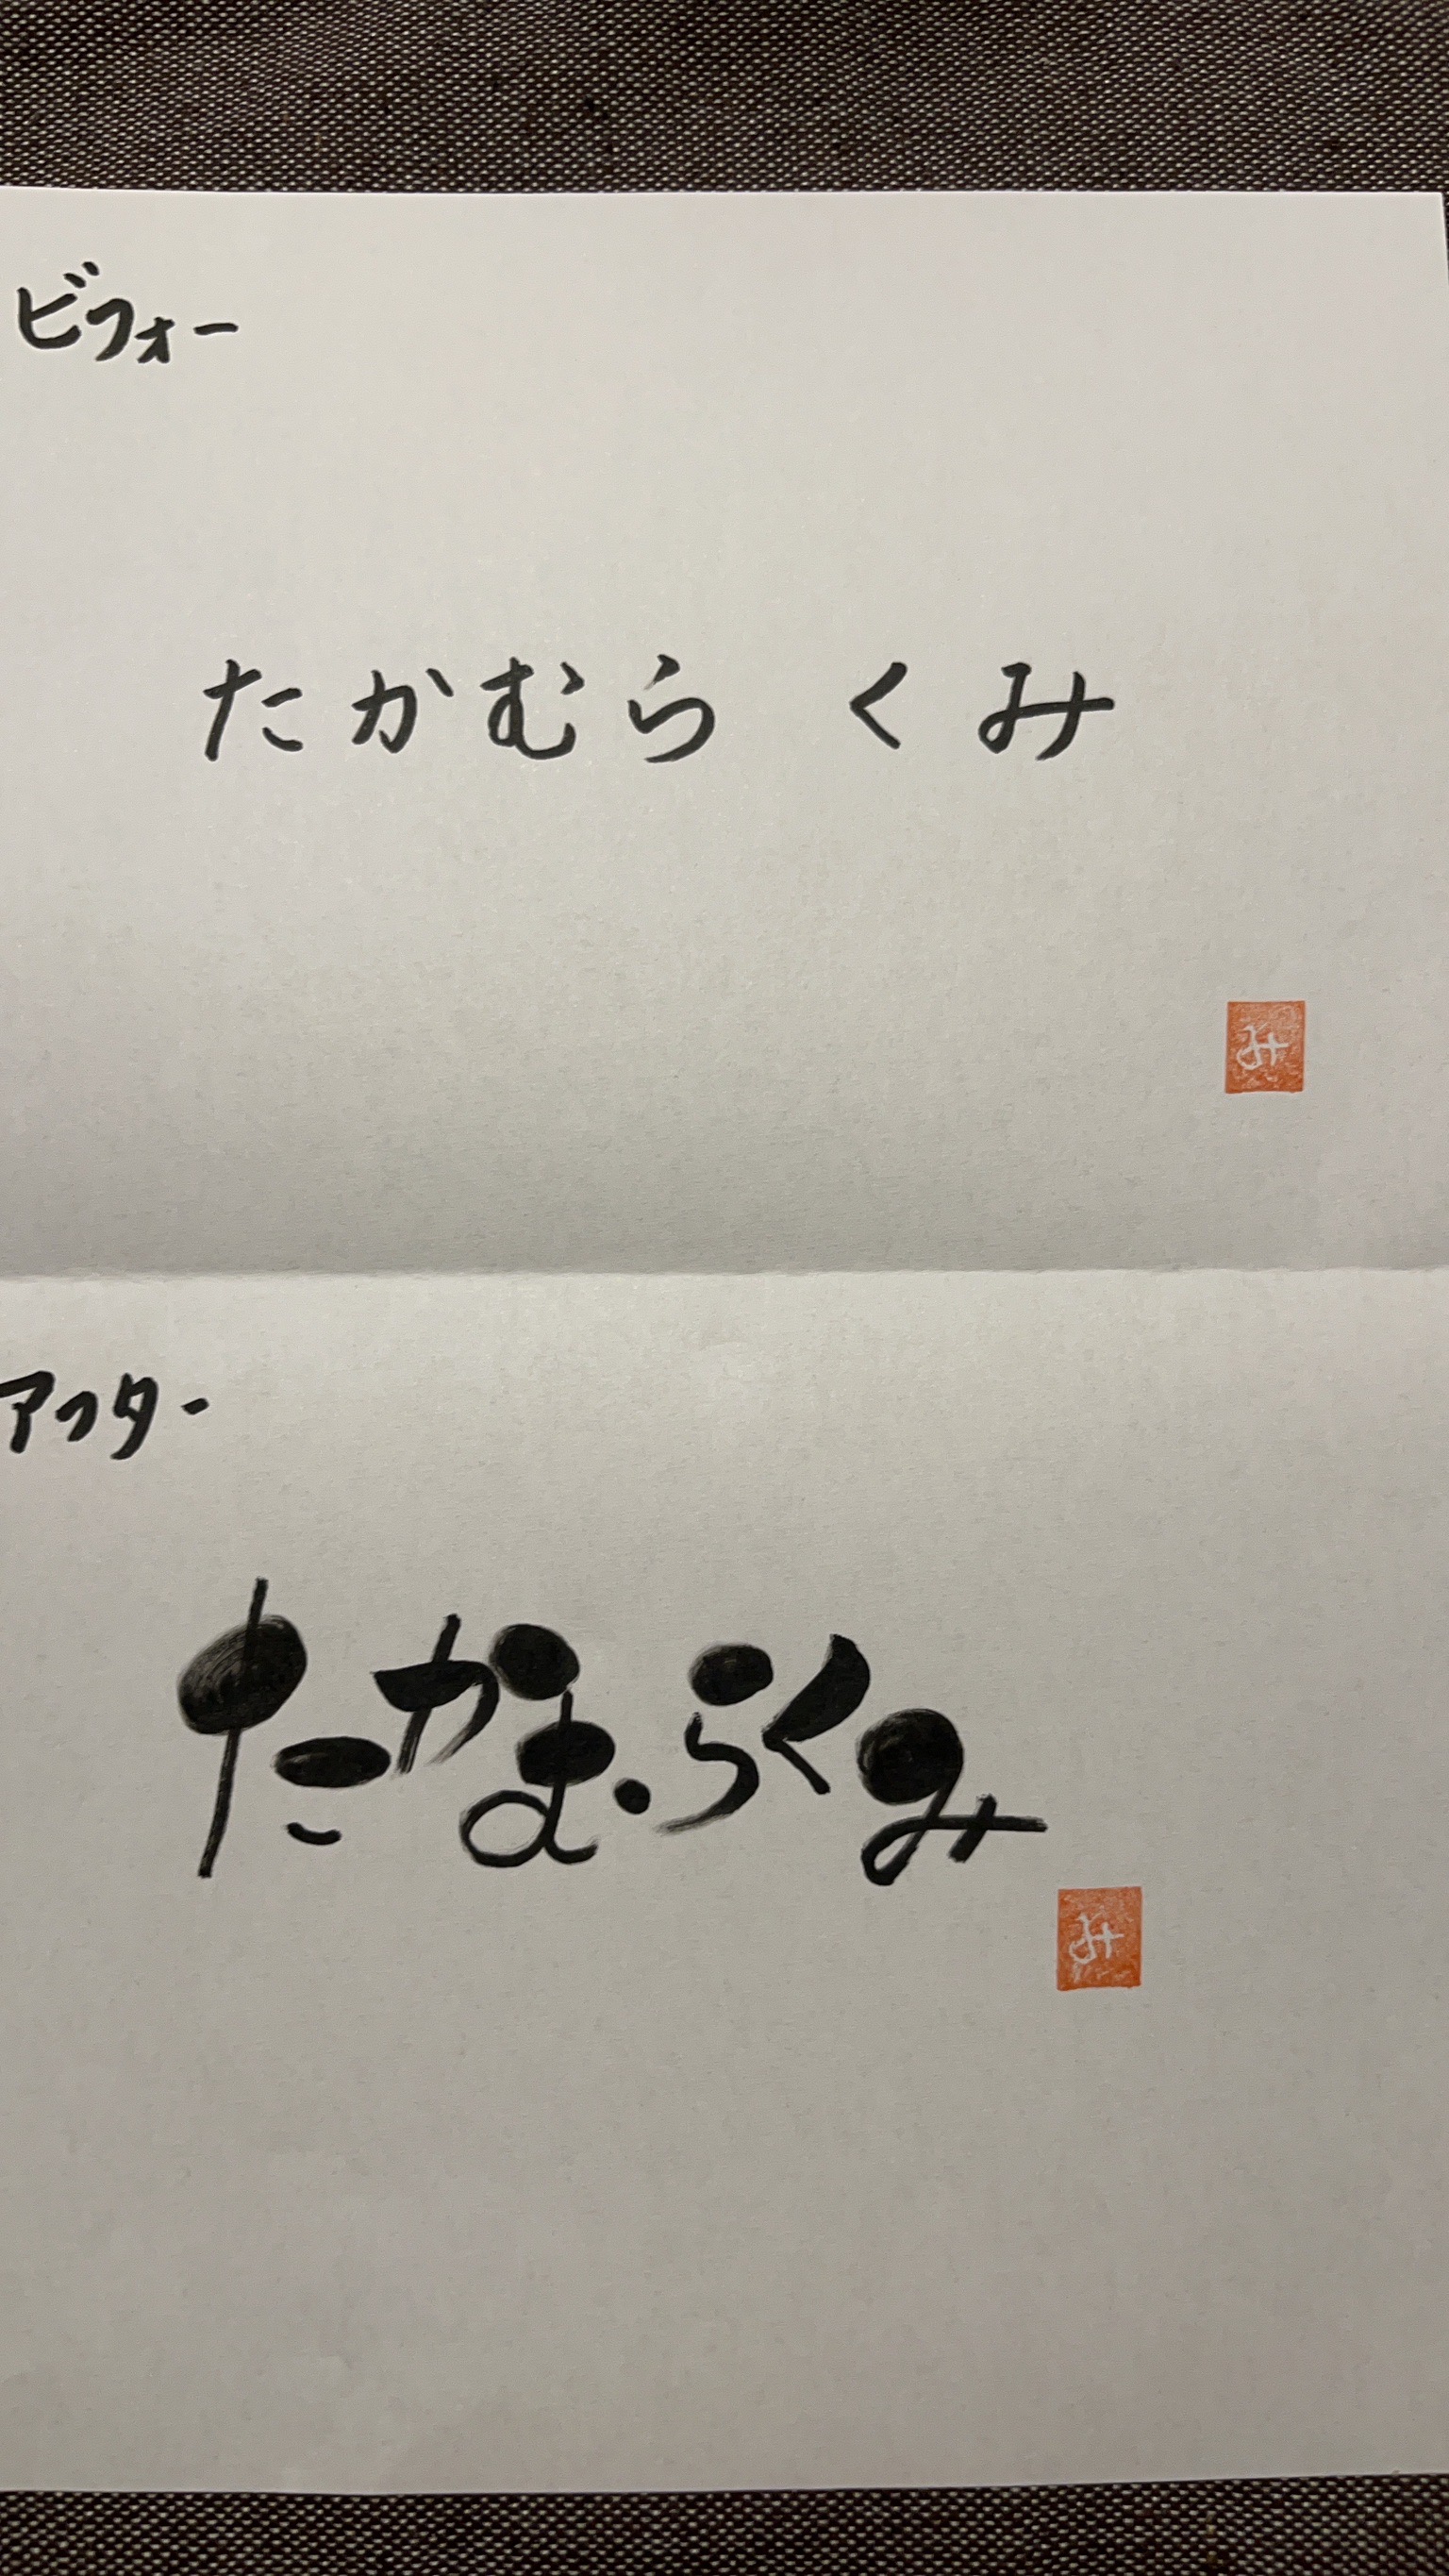 ビフォー
たかむら くみ
み
アフター
たかむらくみ
み